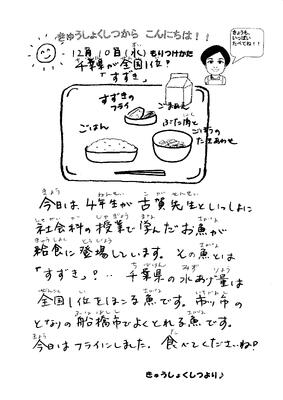 きゅうしょくしつから こんにちは！！
きょうも、
いっぱい
たべてね！！
12月10日(水)もりつけかた
千葉県が全国1位？
「すずき」
すずきの
フライ
ごはん
ぶた肉と
ごぼうの
たきあわせ
今日は、4年生が古賀先生といっしょに
社会科の授業で学んだお魚が
給食に登場しています。その魚とは
「すずき」？‥千葉県の水あげ量は
全国1位をほこる魚です。市川市の
となりの船橋市でよくとれる魚です。
今日はフライにしました。食べてくださいね♡
きゅうしょくしつより♪